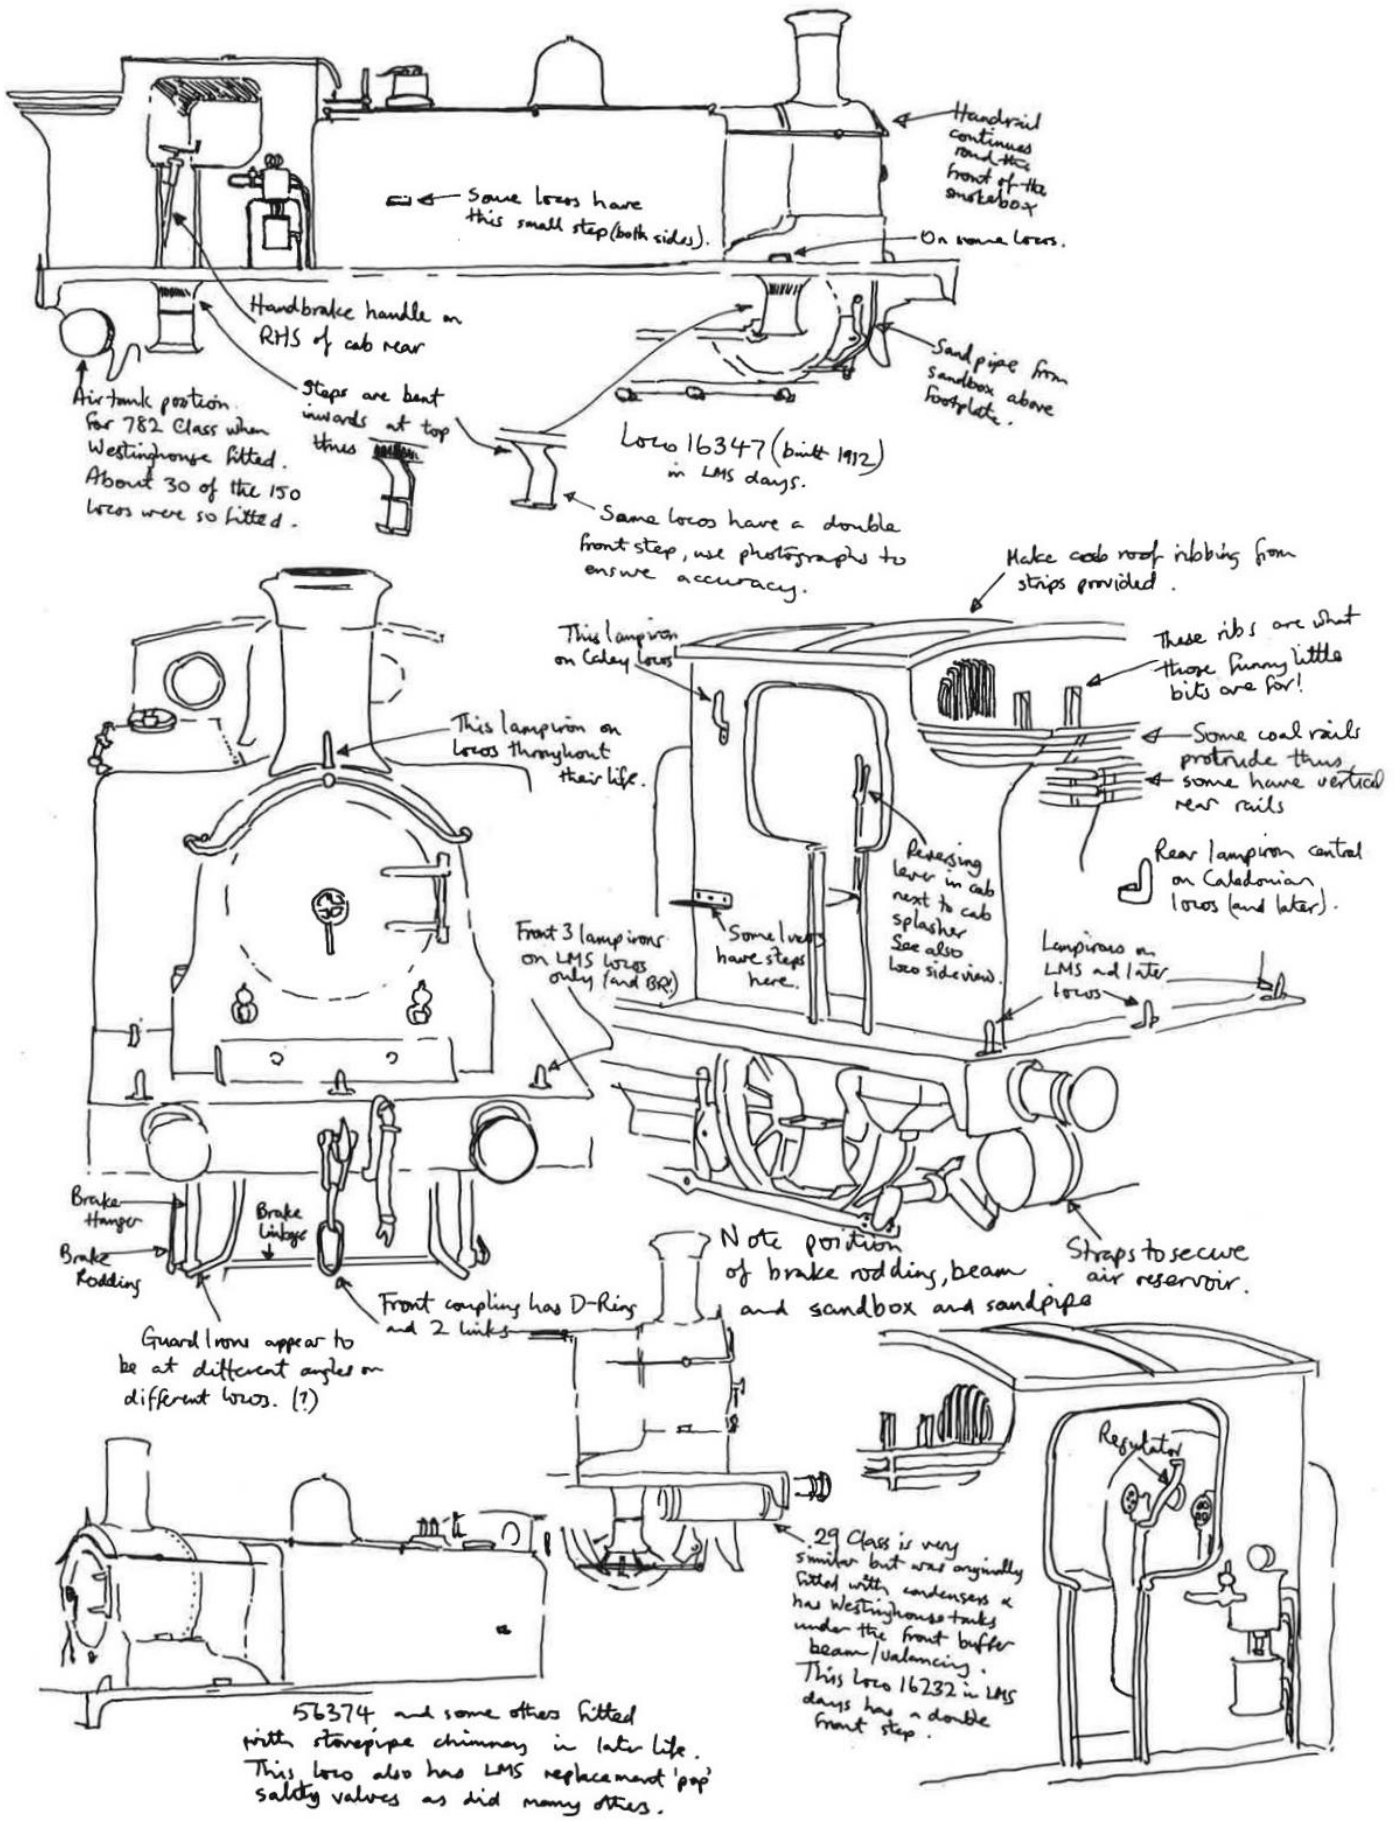 Handrail
continues
round the
front of the
smokebox
Some locos have
this small step (both sides).
On some locos.
Handbrake handle on
RHS of cab rear
Sandpipe from
sandbox above
footplate.
Air tank position
for 782 Class when
Westinghouse fitted.
About 30 of the 150
locos were so fitted.
Steps are bent
inwards at top
thus
Loco 16347 (built 1912)
in LMS days.
Some locos have a double
front step, use photographs to
ensure accuracy.
Make cab roof ribbing from
strips provided.
This lampiron
on Caley locos
These ribs are what
those funny little
bits are for!
This lampiron on
locos throughout
their life.
Some coal rails
protrude thus,
some have vertical
rear rails
Reversing
lever in cab
next to cab
splasher
See also
loco side view.
Rear lampiron central
on Caledonian
locos (and later).
Front 3 lampirons
on LMS locos
only (and BR!)
Some locos
have steps
here.
Lampirons on
LMS and later
locos
Brake
Hanger
Brake
Linkage
Brake
Rodding
Note position
of brake rodding, beam
and sandbox and sandpipe
Straps to secure
air reservoir.
Front coupling has D-Ring
and 2 links
Guard Irons appear to
be at different angles on
different locos. (?)
Regulator
29 Class is very
similar but was originally
fitted with condensers &
has Westinghouse tanks
under the front buffer
beam/valancing.
This loco 16232 in LMS
days has a double
front step.
56374 and some others fitted
with stovepipe chimney in later life.
This loco also has LMS replacement 'pop'
safety valves as did many others.